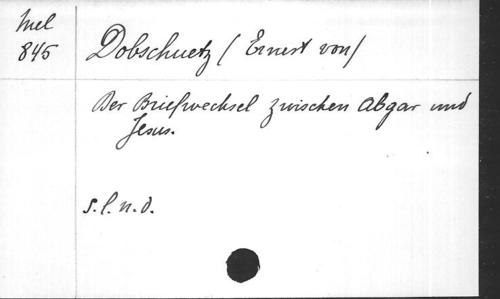 Mel
845
Dobschuetz (Ernest von)
Der Briefwechsel zwischen Abgar und
Jesus.
s.l.n.d.